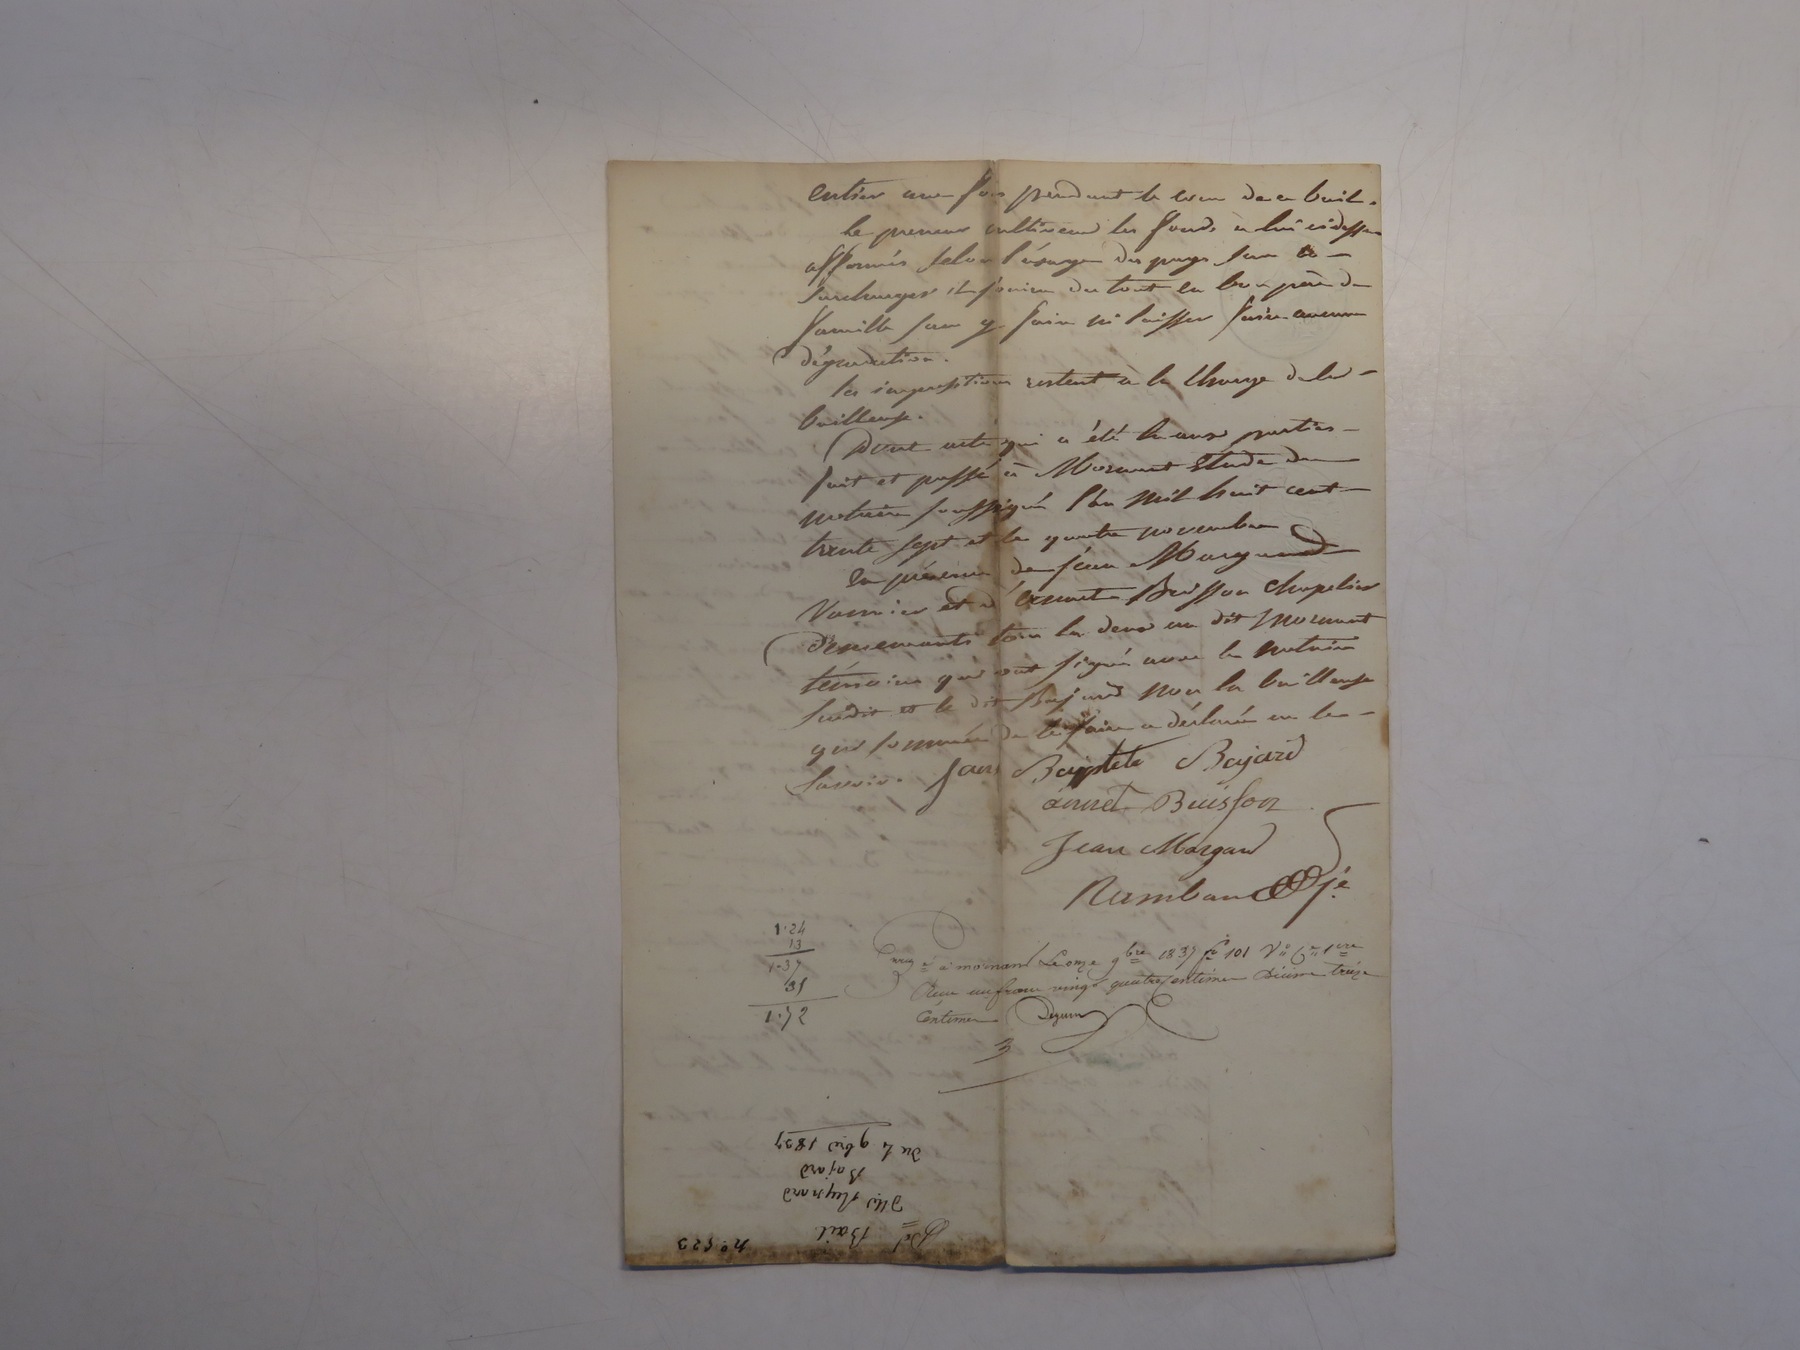 entier une fois pendant le cour de ce bail.
le preneur cultivera les fonds à lui cidessus
affermés selon l'usage du pays sans les
surcharger il jouira du tout en bon père de
famille sans y faire ni laisser faire aucune
dégradation.
les impositions restent à la charge de la
bailleuse.
Dont acte qui a été lu aux parties
fait et passé à Mornant étude du
notaire soussigné l'an mil huit cent
trente sept et le quatre novembre
en présence de Jean Margand
Vannier et d' Buisson chapelier
demeurants tous les deux au dit Mornant
témoins qui ont signé avec le notaire
susdit et le dit Bajard non la bailleuse
qui sommée de le faire a déclaré ne le
savoir. Jean Baptiste Bajard
annet Buisson
Jean Margand
Rambaud je
1.24
13
1.37
35
1.72
à mornant Le onze 9bre 1837 fo 101 Vo Ce 1ere
Reçu un franc vingt quatre centimes Décime treize
Centimes
No 523
Del Bail
Dlle Reynard
Bajard
du 4 9bre 1837